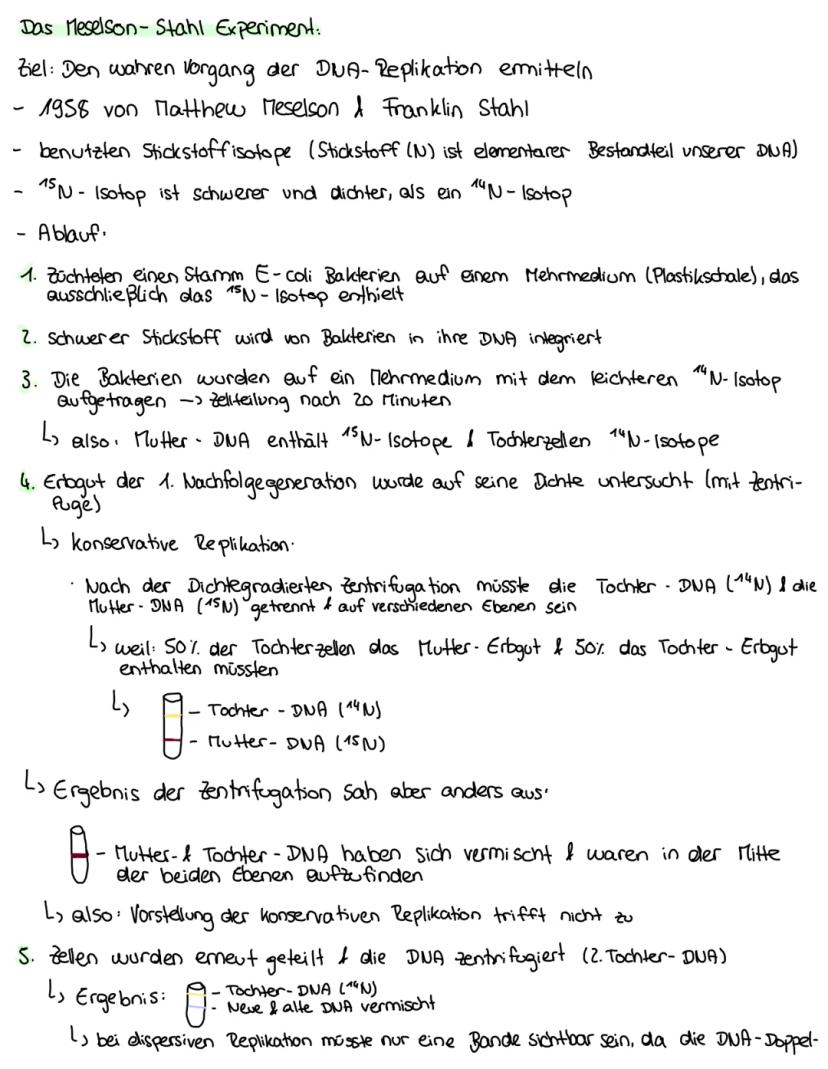 Das Meselson-Stahl Experiment:
Ziel: Den wahren Vorgang der DNA-Replikation ermitteln
- 1958 von Matthew Meselson & Franklin Stahl
- benutzten Stickstoffisotope (Stickstoff (N) ist elementarer Bestandteil unserer DNA)
- ¹⁵N-Isotop ist schwerer und dichter, als ein ¹⁴N-Isotop
- Ablauf:
1. Züchteten einen Stamm E-coli Bakterien auf einem Nehrmedium (Plastikschale), das
ausschließlich das ¹⁵N-Isotop enthielt
2. Schwerer Stickstoff wird von Bakterien in ihre DNA integriert
3. Die Bakterien wurden auf ein Nehrmedium mit dem leichteren ¹⁴N-Isotop
aufgetragen -> Zellteilung nach 20 Minuten
↳ also: Mutter-DNA enthält ¹⁵N-Isotope & Tochterzellen ¹⁴N-Isotope
4. Erbgut der 1. Nachfolgegeneration wurde auf seine Dichte untersucht (mit Zentri-
fuge)
↳ konservative Replikation:
· Nach der Dichtegradierten Zentrifugation müsste die Tochter-DNA (¹⁴N) & die
Mutter-DNA (¹⁵N) getrennt & auf verschiedenen Ebenen sein
↳ weil: 50% der Tochterzellen das Mutter-Erbgut & 50% das Tochter-Erbgut
enthalten müssten
↳ - Tochter-DNA (¹⁴N)
- Mutter-DNA (¹⁵N)
↳ Ergebnis der Zentrifugation sah aber anders aus:
- Mutter-& Tochter-DNA haben sich vermischt & waren in der Mitte
der beiden Ebenen aufzufinden
↳ also: Vorstellung der konservativen Replikation trifft nicht zu
5. Zellen wurden erneut geteilt & die DNA zentrifugiert (2. Tochter-DNA)
↳ Ergebnis: - Tochter-DNA (¹⁴N)
- Neue & alte DNA vermischt
↳ bei dispersiven Replikation müsste nur eine Bande sichtbar sein, da die DNA-Doppel-